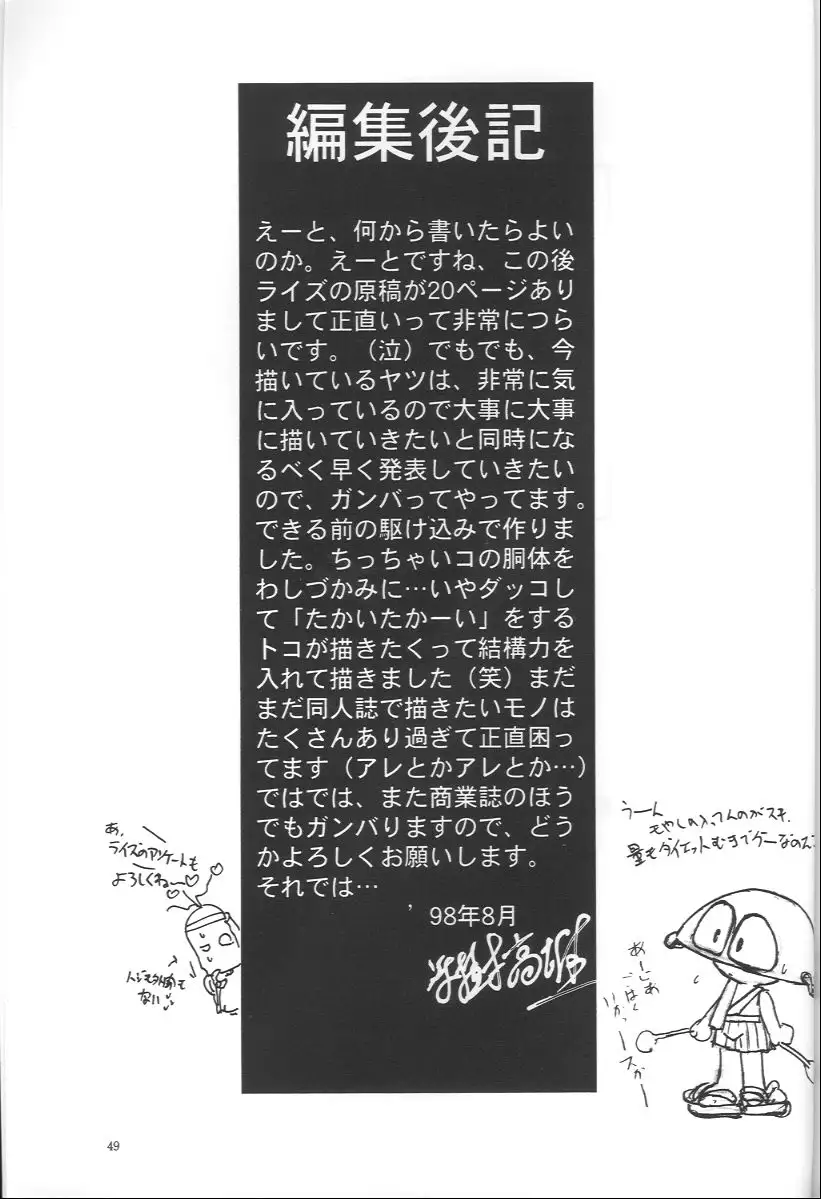 編集後記
えーと、何から書いたらよい
のか。えーとですね、この後
ライズの原稿が20ページあり
まして正直いって非常につら
いです。（泣）でもでも、今
描いているヤツは、非常に気
に入っているので大事に大事
に描いていきたいと同時にな
るべく早く発表していきたい
ので、ガンバってやってます。
できる前の駆け込みで作りま
した。ちっちゃいコの胴体を
わしづかみに…いやダッコし
て「たかいたかーい」をする
トコが描きたくって結構力を
入れて描きました（笑）まだ
まだ同人誌で描きたいモノは
たくさんあり過ぎて正直困っ
てます（アレとかアレとか…）
ではでは、また商業誌のほう
でもガンバりますので、どう
かよろしくお願いします。
それでは…
’98年8月
あ、
ライズのアンケートも
よろしくね〜♡
うーん
量もダイエットむきでグーなのよ
49